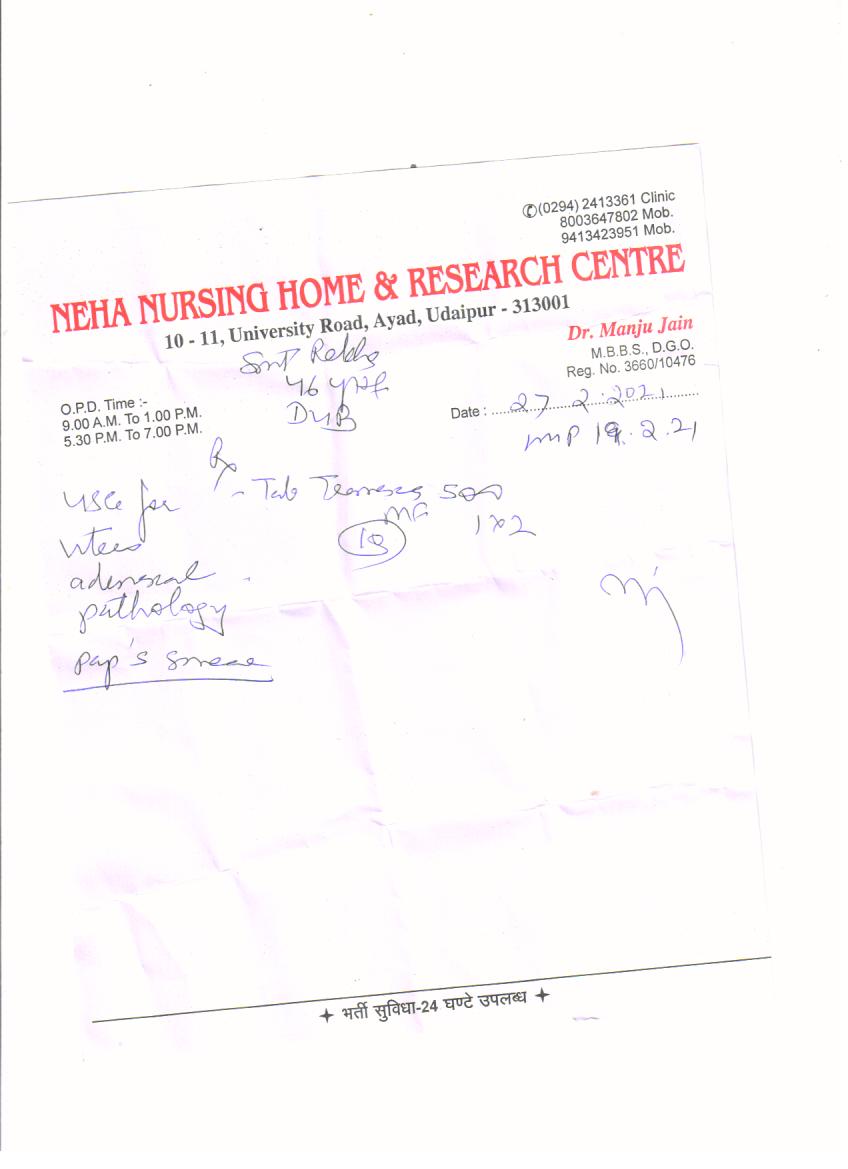 ✆(0294) 2413361 Clinic
8003647802 Mob.
9413423951 Mob.
NEHA NURSING HOME & RESEARCH CENTRE
10 - 11, University Road, Ayad, Udaipur - 313001
Dr. Manju Jain
M.B.B.S., D.G.O.
Reg. No. 3660/10476
Smt
46
DUB
O.P.D. Time :-
9.00 A.M. To 1.00 P.M.
5.30 P.M. To 7.00 P.M.
Date : 27.2.2021
LMP 19.2.21
Rx
- Tab 500
MF
1x2
USG for
uterus
adenexal
pathology
pap's smear
✦ भर्ती सुविधा-24 घण्टे उपलब्ध ✦